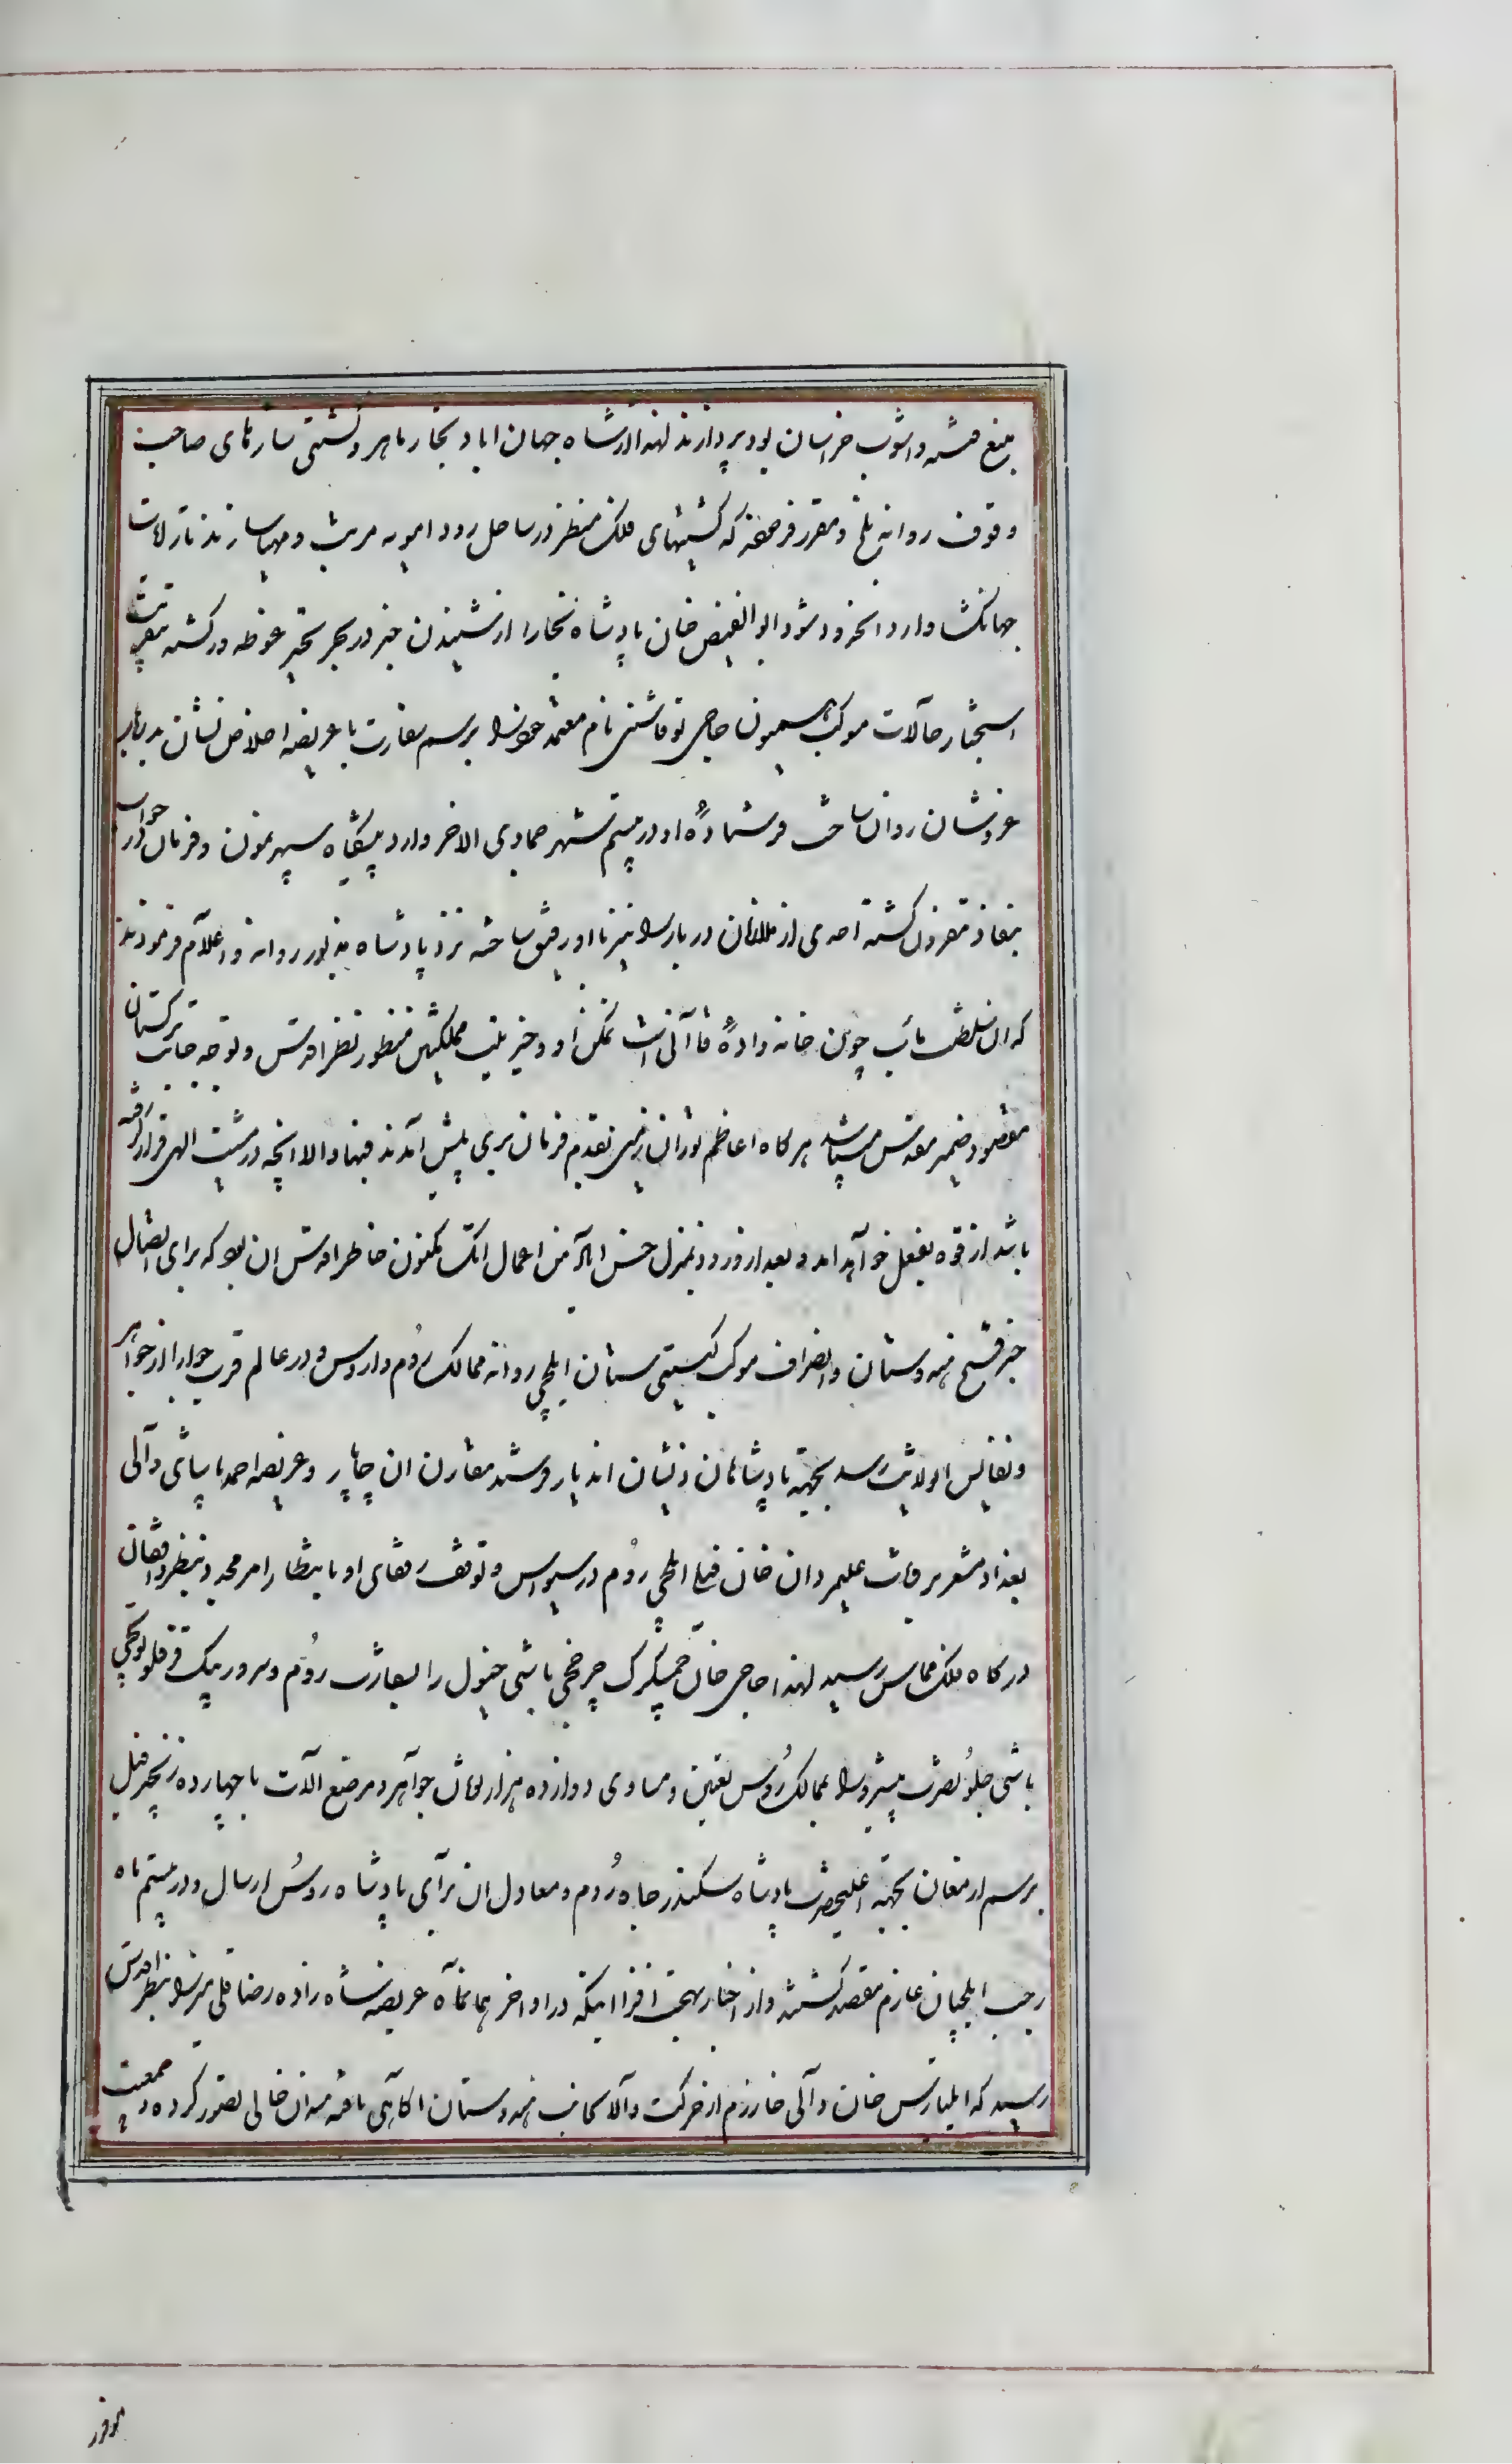 منبع فتنه و اشوب خراسان بود پردازند لهذا از شاه جهان اباد نجار ماهر و کشتی سازهای صاحب
وقوف روانه بلخ و مقرر فرمودند که کشتیهای فلک منظر در ساحل رود امویه مرتب و مهیا سازند تا رایات
جهانگشا وارد انحدود شود ابوالفیض خان پادشاه بخارا از شنیدن خبر در بحر تحیر غوطه ور گشته بتقریب
استخبار حالات موکب همیون حاجی توقاشی نام معتمد خود را برسم سفارت با عریضه اخلاص نشان بدربار
عز و شان روان ساخت فرستاده او در بیستم شهر جمادی الاخر وارد پیشگاه سپهر نمون و فرمان جواب در
بنفاذ مقرون گشته احدی از ملازمان دربار را نیز با او رفیق ساخته نزد پادشاه مزبور روانه و اعلام فرمودند
که ان سلطنت ماب چون خانه داده قاآنی است تمکن او و خیریت مملکتش منظور نظر اقدس و توجه جانب ترکستان
مقصود ضمیر مقدس میباشد هر کاه اعاظم توران زمین بقدم فرمان بری پیش آمدند فبها والا انچه در مشیت الهی قرار گرفته
باشد از قوه بفعل خواهد امد و بعد از ورود بمنزل حسن ابدال من اعمال اتک مکنون خاطر اقدس ان بود که برای ایصال
خبر فتح هندوستان و انصراف موکب گیتی ستان ایلچی روانه ممالک رُوم و اروس و در عالم قرب جوار از جواهر
و نفایس انولایت رسد بجهته پادشاهان ذیشان اندیار فرستند مقارن ان چاپار و عریضه احمد پاشای والی
بغداد مشعر بر وفات علیمردان خان فیلی ایلچی رُوم در سیواس و توقف رفقای او بانتظار امر مجدد بنظر واقفان
درکاه فلک مماس رسید لهذا حاجی خان چمشکزک چرخچی باشی جنبول را بسفارت رُوم و سرور بیک قرقلو توپچی
باشی جلو نصرت پیرو را بممالک رُوس تعیین و مساوی دوازده هزار تومان جواهر و مرصع الات با چهارده زنجیر فیل
برسم ارمغان بجهته اعلیحضرت پادشاه سکندر جاه رُوم و معادل ان برای پادشاه روس ارسال و در بیستم ماه
رجب ایلچیان عازم مقصد گشتند و از اخبار بهجت افزا اینکه در اواخر همانماه عریضه شاه زاده رضاقلی میرزا بنظر اقدس
رسید که ایلبارس خان والی خارزم از حرکت والا بجانب هندوستان اکاهی یافته میدان خالی تصور کرده و جمعیت
موفور